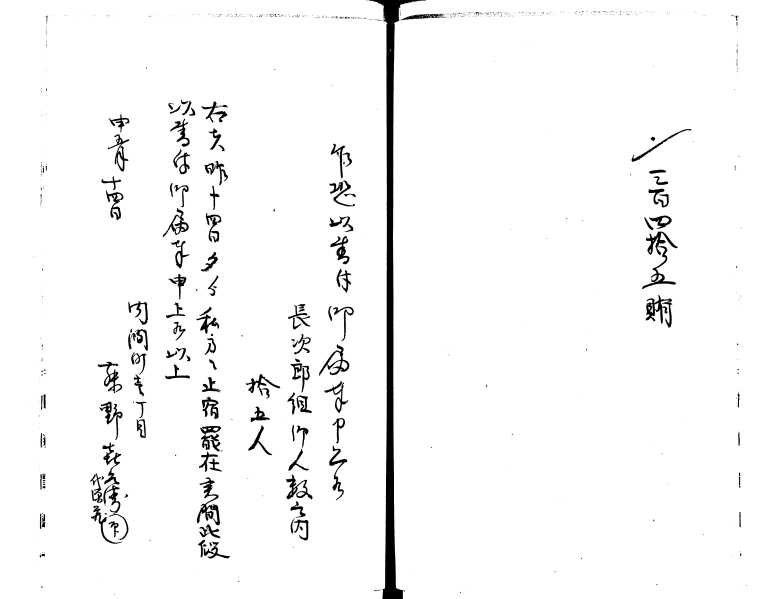 三百四拾五賄
乍恐以書付御届奉申上候
長次郎組御人数之内
拾五人
右者昨十四日夕ゟ私方へ止宿罷在候間此段
以書付御届奉申上候以上
申五月
十四日
町壱丁目
野